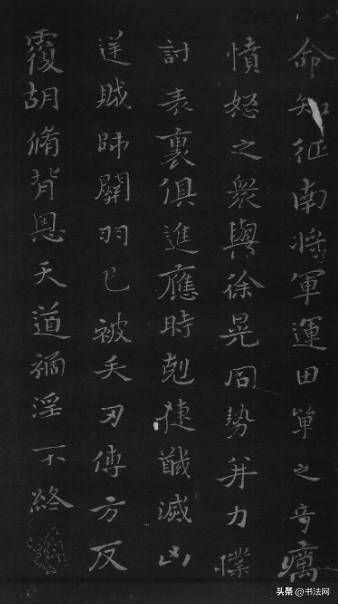 命知征南將軍運田單之奇厲
憤怒之眾與徐晃同勢并力撲
討表裏俱進應時剋捷馘滅凶
逆賊帥關羽已被矢刃傅方反
覆胡脩背恩天道禍淫不終
头条 @书法网